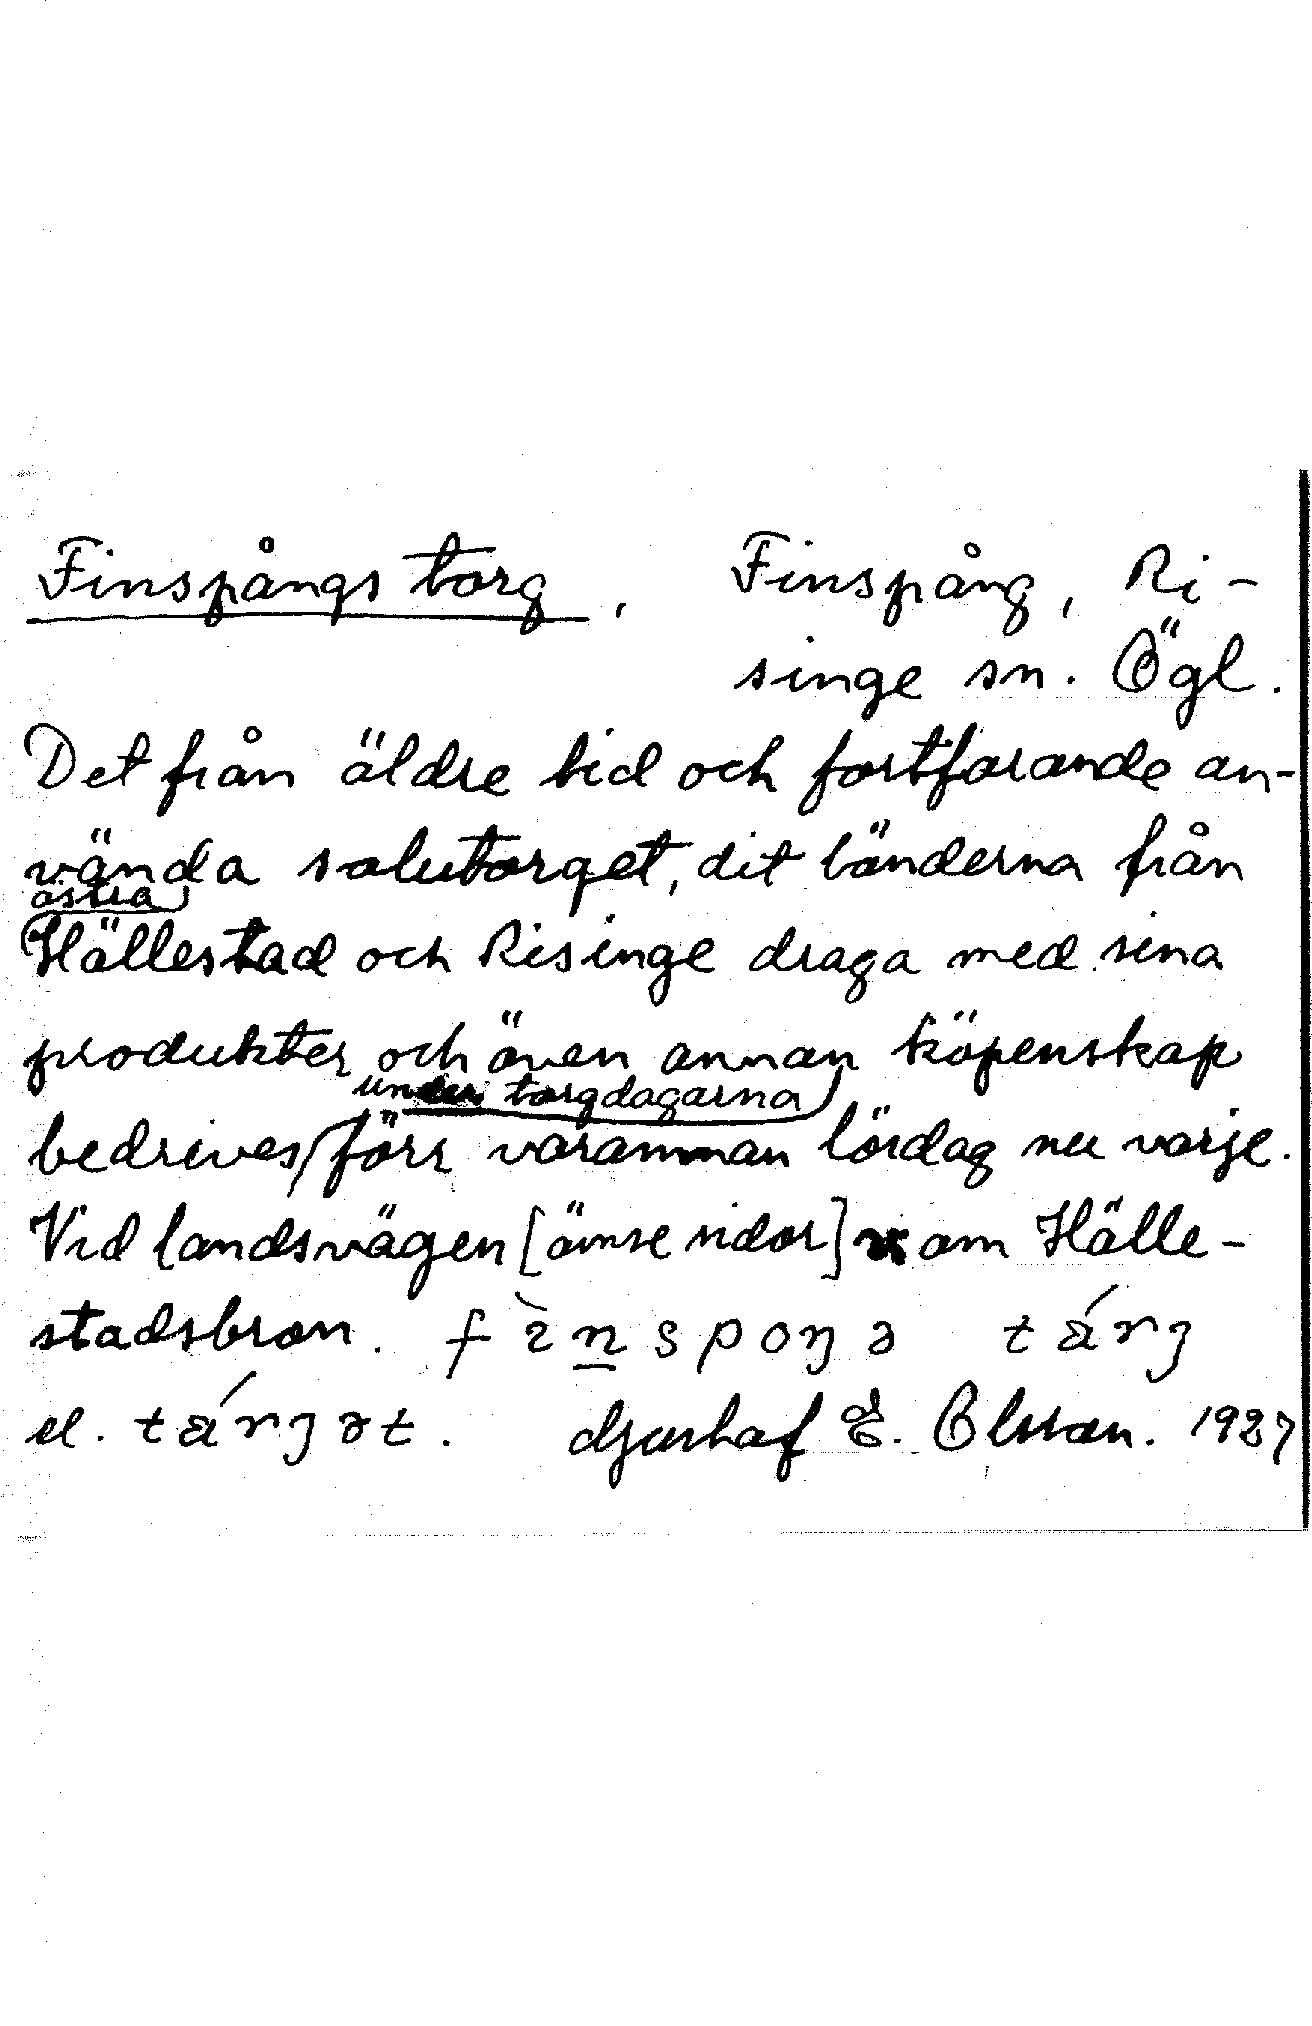 Finspångs torg, Finspång, Ri-
singe sn. Ögl.
Det från äldre tid och fortfarande an-
vända salutorget, dit bönderna från
östra
Hällestad och Risinge draga med sina
produkter och även annan köpenskap
under torgdagarna
bedrives förr varannan lördag nu varje.
Vid landsvägen [ömse sidor] om Hälle-
stadsbron. fìnspoŋə tárʒ
el. tárʒət. Olsson. 1927